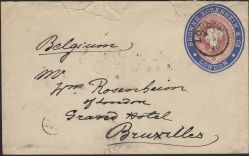 BROWNE ROSENHEIM & Co.
LONDON
Belgium
Mr.
Wm Rosenheim
of London
Grand Hotel
Bruxelles